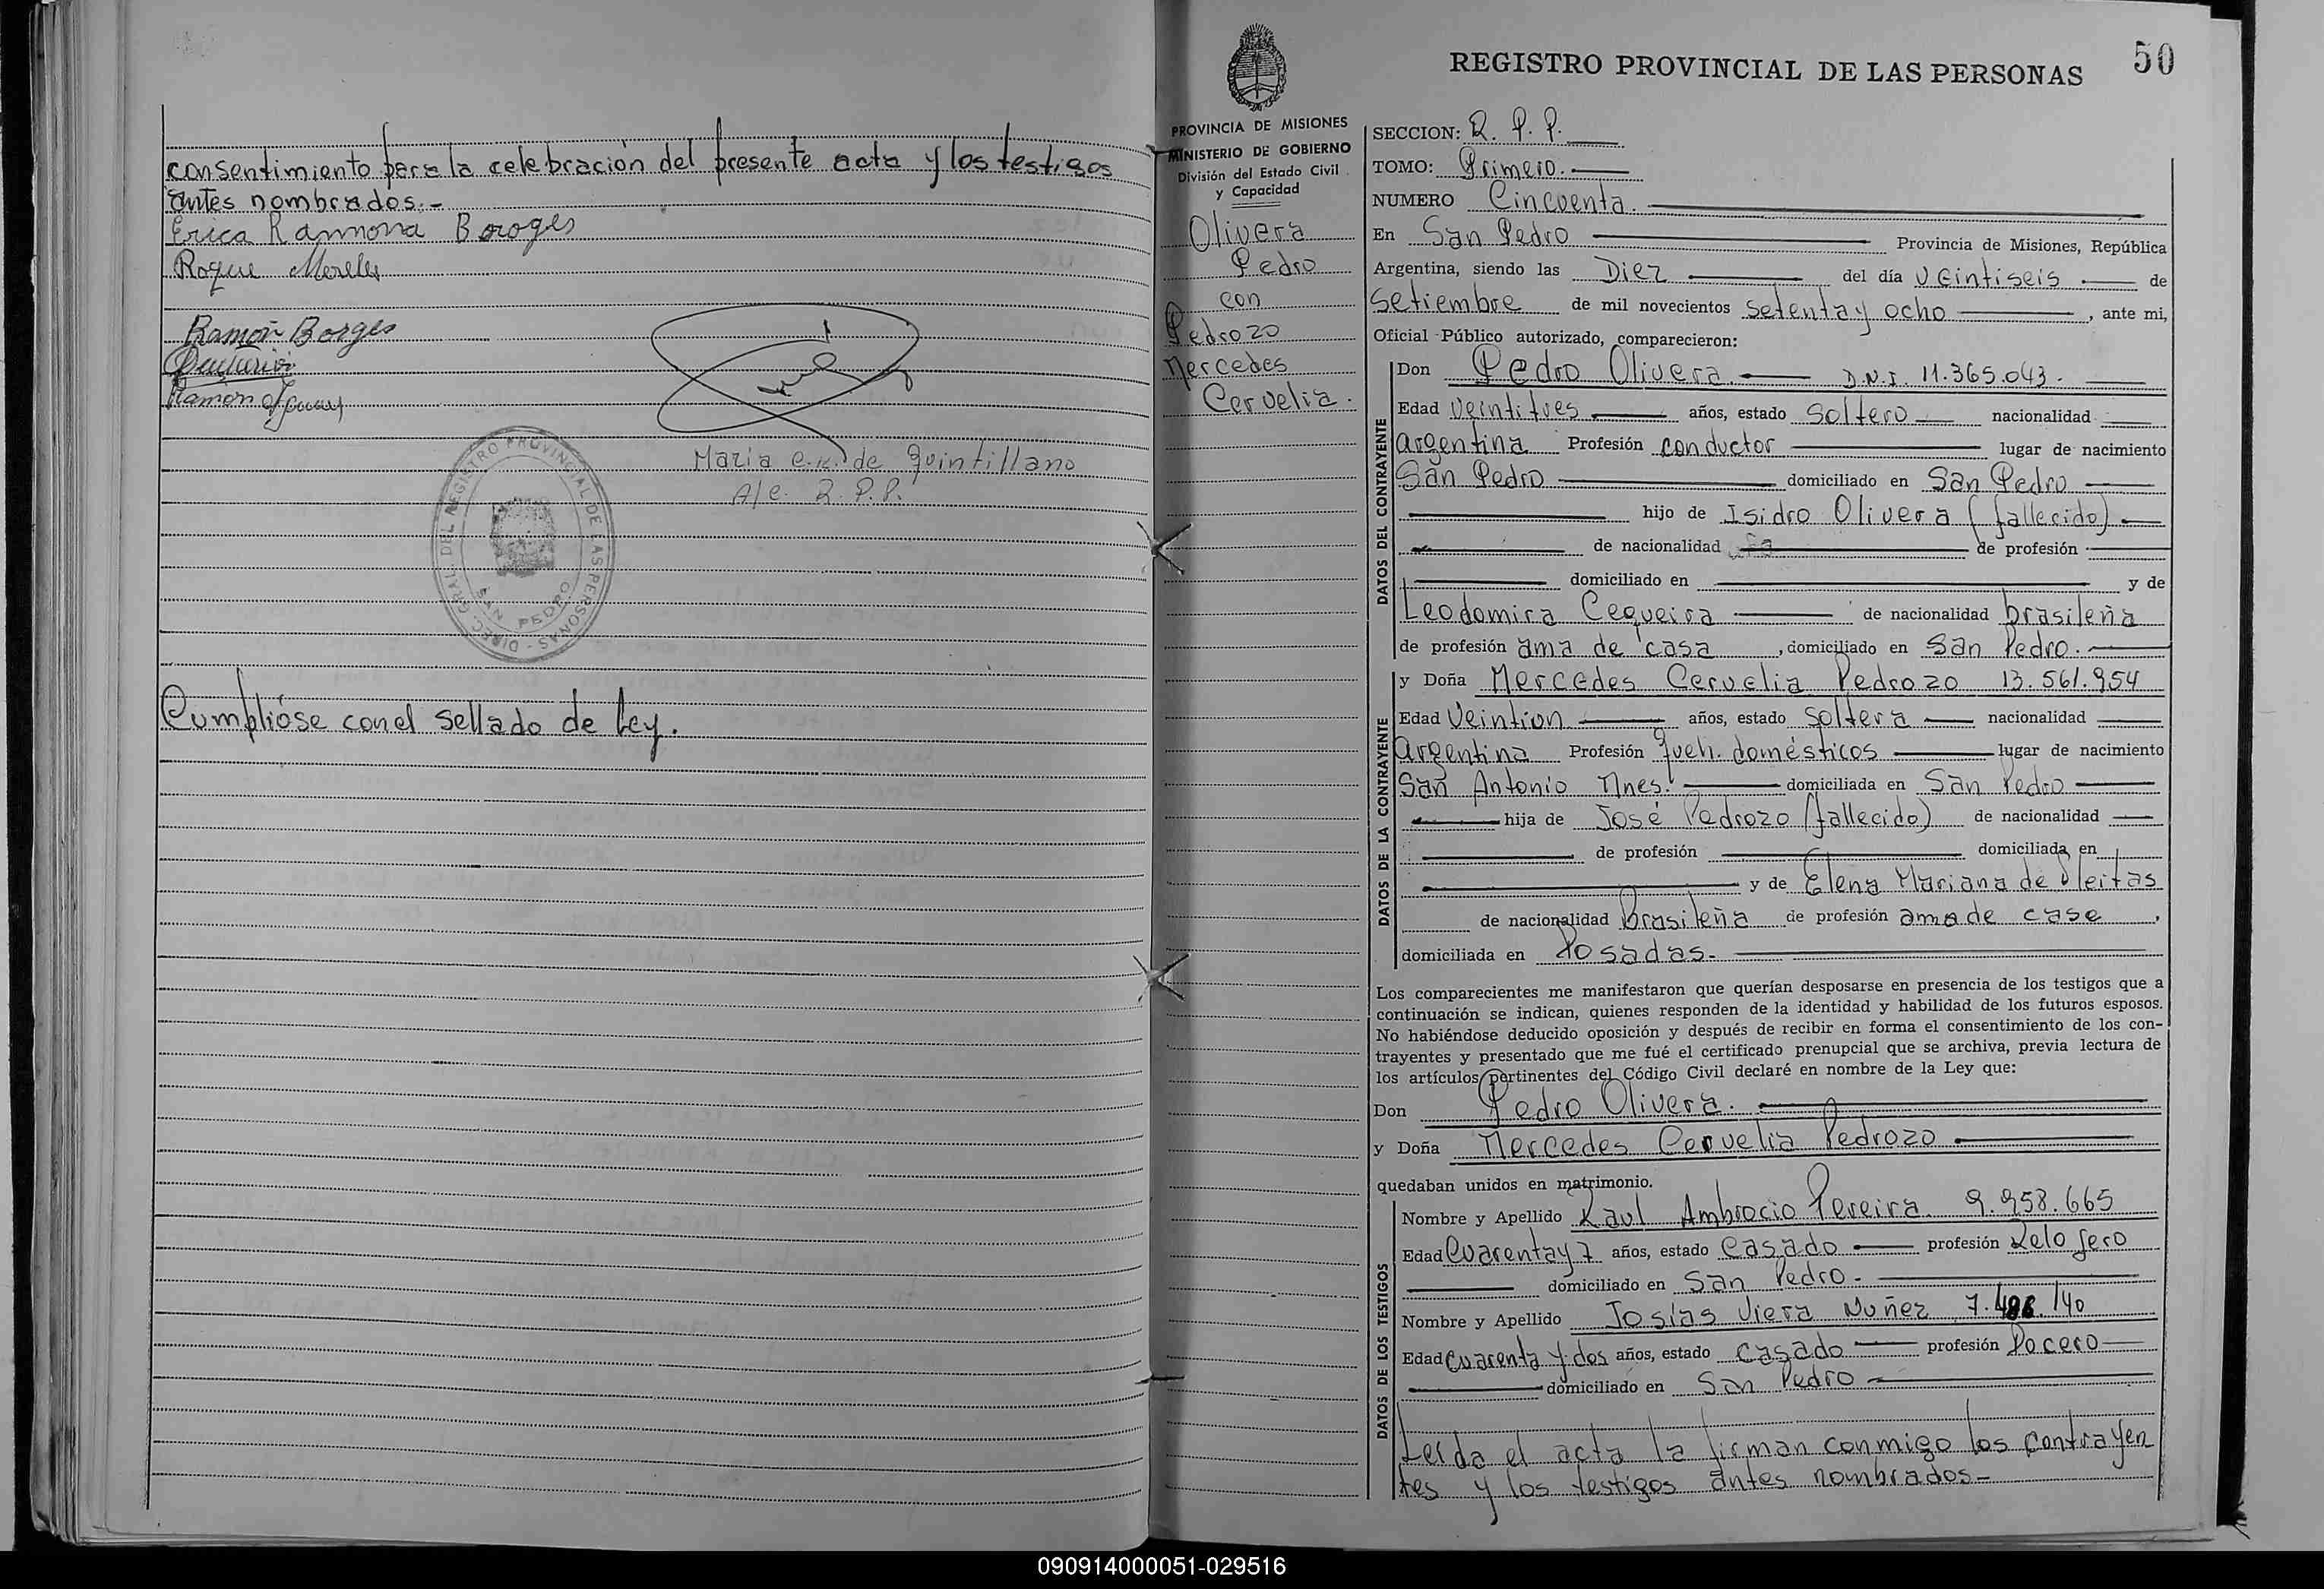 consentimiento para la celebración del presente acta y los testigos
antes nombrados.-
Erica Ramona Boroges
Roque Mereles
Ramón Borges
Ramón
Maria e.k. de Quintillano
A/c. R.P.P.
DIREC. GRAL. DEL REGISTRO PROVINCIAL DE LAS PERSONAS -
SAN PEDRO
Cumplióse con el sellado de Ley.
50
REGISTRO PROVINCIAL DE LAS PERSONAS
PROVINCIA DE MISIONES
MINISTERIO DE GOBIERNO
División del Estado Civil
y Capacidad
Olivera
Pedro
con
Pedrozo
Mercedes
Cervelia.
SECCION: R. P. P.
TOMO: Primero.
NUMERO Cincuenta.
En San Pedro Provincia de Misiones, República
Argentina, siendo las Diez del día veintiseis de
Setiembre de mil novecientos setenta y ocho, ante mi,
Oficial Público autorizado, comparecieron:
DATOS DEL CONTRAYENTE
Don Pedro Olivera. D.N.I. 11.365.043.
Edad veintitres años, estado soltero nacionalidad
argentina Profesión conductor lugar de nacimiento
San Pedro domiciliado en San Pedro
hijo de Isidro Olivera (fallecido)
de nacionalidad de profesión
domiciliado en y de
Leodomira Cequeira de nacionalidad brasileña
de profesión ama de casa, domiciliado en San Pedro.
DATOS DE LA CONTRAYENTE
y Doña Mercedes Cervelia Pedrozo 13.561.954
Edad Veintiun años, estado soltera nacionalidad
argentina Profesión queh. domésticos lugar de nacimiento
San Antonio Mnes. domiciliada en San Pedro
hija de José Pedrozo (fallecido) de nacionalidad
de profesión domiciliada en
y de Elena Mariana de Fleitas
de nacionalidad Brasileña de profesión ama de casa,
domiciliada en Posadas.
Los comparecientes me manifestaron que querían desposarse en presencia de los testigos que a
continuación se indican, quienes responden de la identidad y habilidad de los futuros esposos.
No habiéndose deducido oposición y después de recibir en forma el consentimiento de los con-
trayentes y presentado que me fué el certificado prenupcial que se archiva, previa lectura de
los artículos pertinentes del Código Civil declaré en nombre de la Ley que:
Don Pedro Olivera.
y Doña Mercedes Cervelia Pedrozo
quedaban unidos en matrimonio.
DATOS DE LOS TESTIGOS
Nombre y Apellido Raul Ambrocio Pereira 9.958.665
Edad Cuarenta y 7 años, estado Casado profesión Relojero
domiciliado en San Pedro.
Nombre y Apellido Josías Viera Nuñez 7.486.140
Edad cuarenta y dos años, estado casado profesión Pocero
domiciliado en San Pedro
Leida el acta la firman conmigo los contrayen
tes y los testigos antes nombrados.-
090914000051-029516